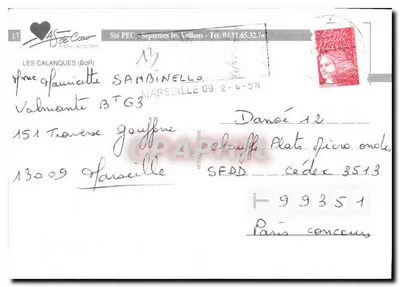 LT
As de Cœur
Sté PEC - Septemes les Vallons - Tel. 04.91.65.32.76
LES CALANQUES (BdR)
13
MARSEILLE 09 2-4-98
Mme Mauricette SAMBINELLO
Valmante BTG3
151 Traverse Gouffonne
13009 Marseille
Danoé 12
chauffe Plats Micro ondes
SEDD cédex 3513
99351
Paris concours